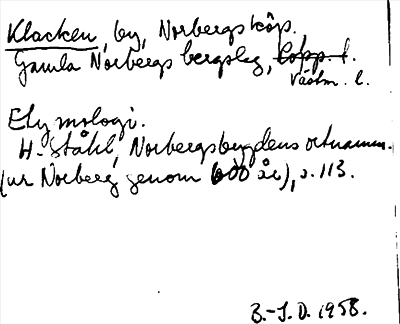 Klacken, by, Norbergs köp.,
Gamla Norbergs bergslag, Kopp. l.
Västm. l.
Etymologi.
H. Ståhl, Norbergsbygdens ortnamn.
(ur Norberg genom 600 år), s. 113.
B.-J.D. 1958.